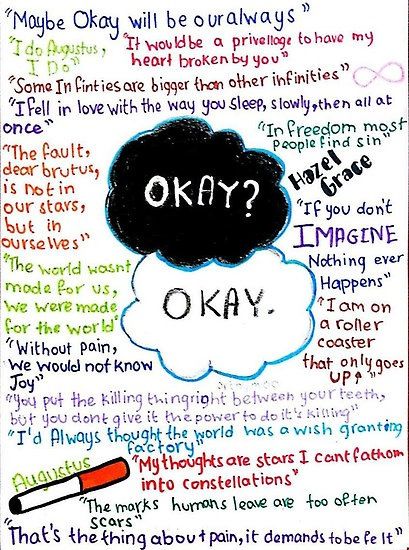 "Maybe Okay will be our always"
"I do Augustus,
I Do"
"It would be a privellage to have my
heart broken by you"
"Some Infinties are bigger than other infinities"
"I fell in love with the way you sleep, slowly, then all at
once"
"In freedom most
people find sin"
"The fault,
dear brutus,
is not in
our stars,
but in
ourselves"
OKAY?
Hazel
Grace
"If you don't
IMAGINE
Nothing ever
Happens"
"The world wasnt
made for us,
we were made
for the world"
OKAY.
"I am on
a roller
coaster
that only goes
UP↑"
"Without pain,
we would not know
Joy"
"you put the killing thing right between your teeth,
but you dont give it the power to do it's killing"
"I'd Always thought the world was a wish granting
factory"
Augustus
"My thoughts are stars I cant fathom
into constellations"
"The marks humans leave are too often
scars"
"That's the thing about pain, it demands to be felt"